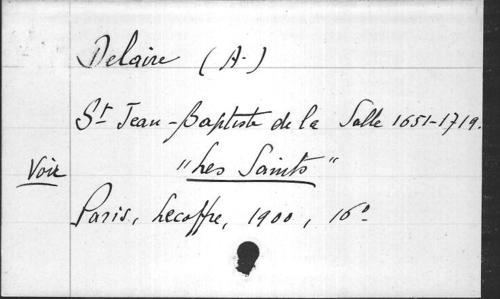 Delaire (A.)
St Jean-Baptiste de la Salle 1651-1719.
Voir "Les Saints"
Paris, Lecoffre, 1900, 16º